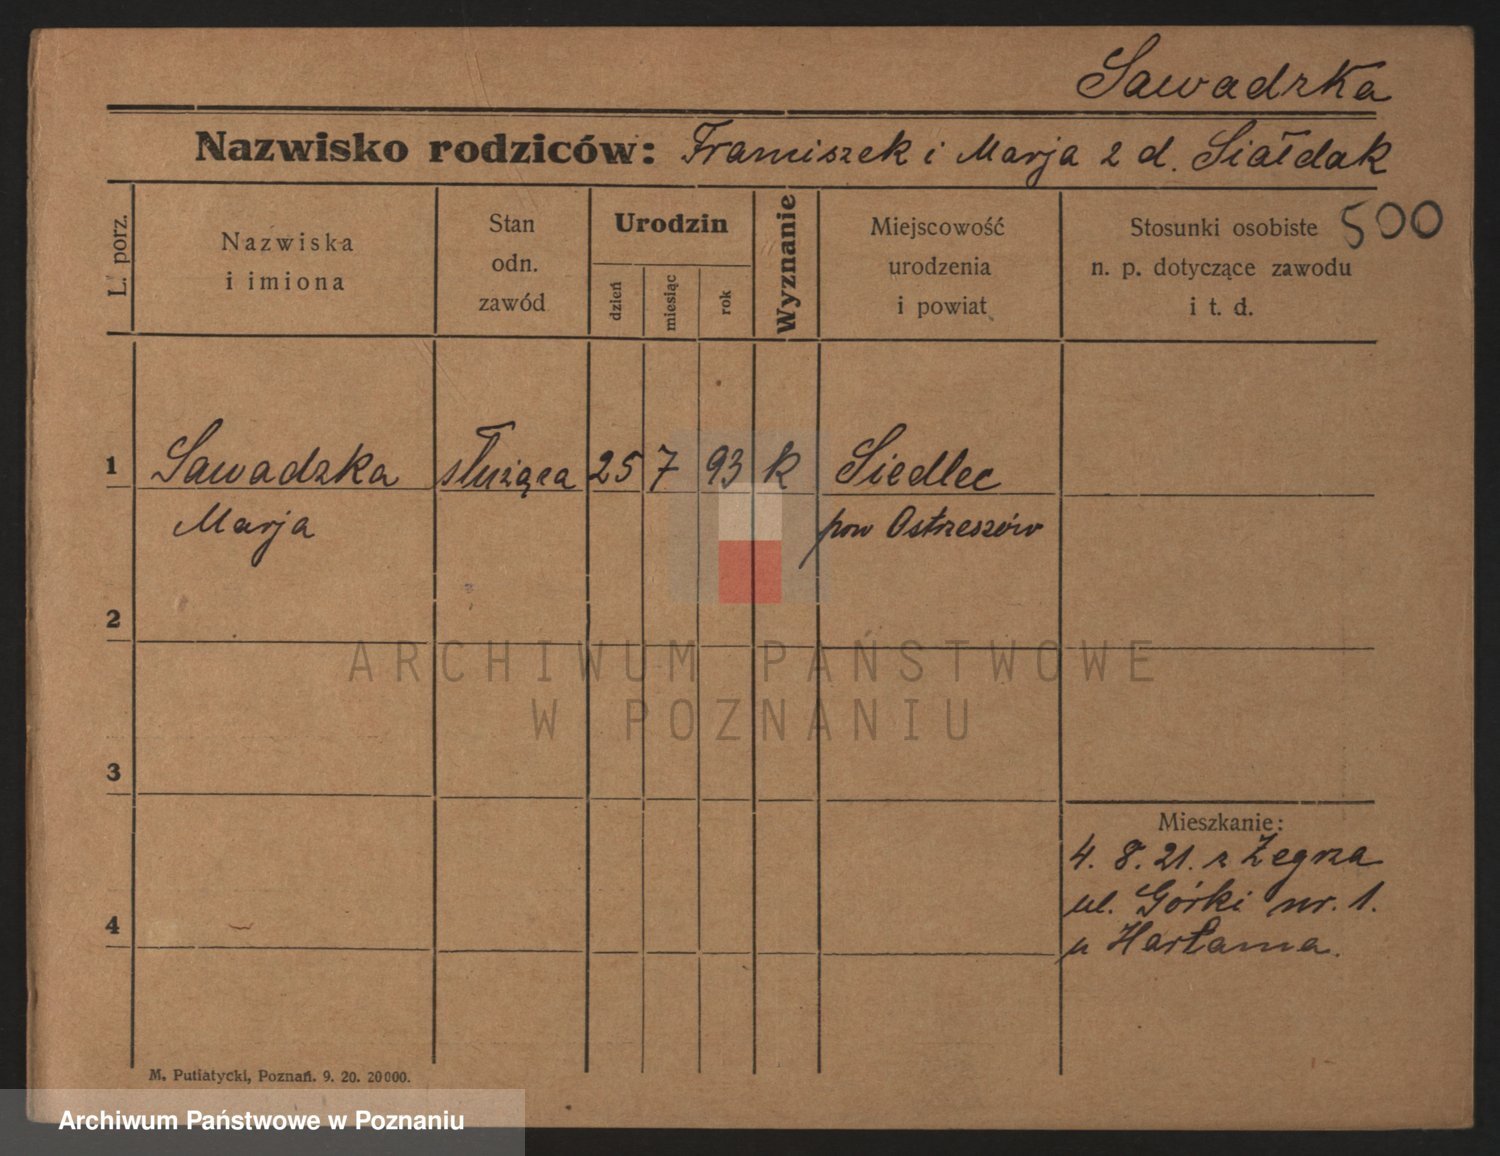 Sawadzka
Nazwisko rodziców: Franciszek i Marja z d. Siałdak
500
L. porz.
Nazwiska
i imiona
Stan
odn.
zawód
Urodzin
dzień
miesiąc
rok
Wyznanie
Miejscowość
urodzenia
i powiat
Stosunki osobiste
n. p. dotyczące zawodu
i t. d.
1 Sawadzka służąca 25 7 93 k Siedlec
Marja pow Ostrzeszów
2
3
4
Mieszkanie:
4. 8. 21. z Żegrza
ul. Górki nr. 1.
u Harłama.
M. Putiatycki, Poznań. 9. 20. 20000.
ARCHIWUM PAŃSTWOWE
W POZNANIU
Archiwum Państwowe w Poznaniu